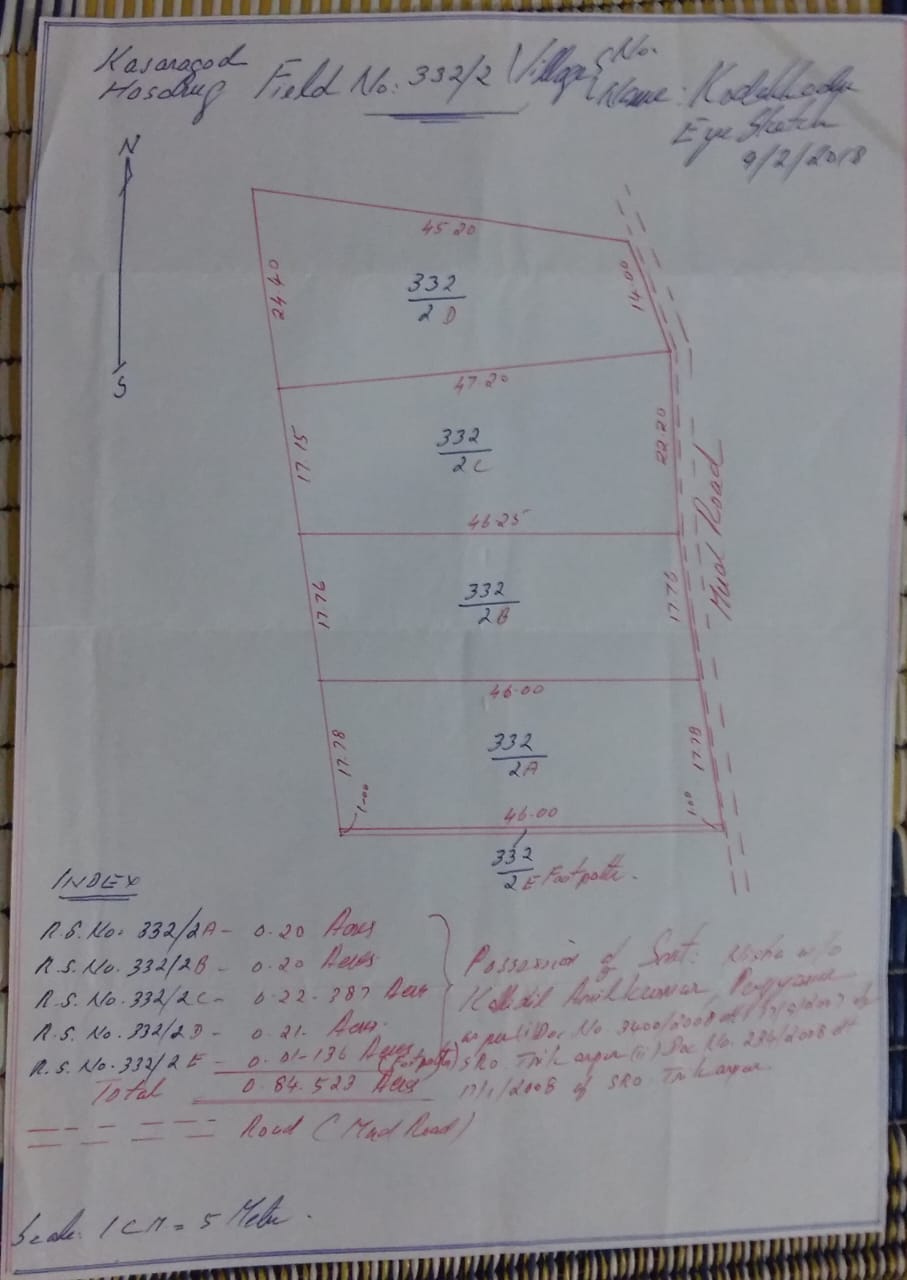 Kasaragod
Hosdurg
Field No: 332/2
Village
No.
Name:
Eye Sketch
9/2/2018
N
S
45.20
24.40
332
2 D
14.00
47.20
17.15
332
2C
22.20
46.25
17.76
332
2B
17.76
Mud Road
46.00
17.78
332
2A
17.78
1.00
46.00
1.00
332
2 E Footpath.
INDEX
R.S. No. 332/2A - 0.20 Acres
R.S. No. 332/2B - 0.20 Acres
R.S. No. 332/2C - 0.22.387 Acres
R.S. No. 332/2D - 0.21. Acres.
R.S. No. 332/2E - 0.01-136 Acres (Footpath)
Total 0.84.523 Acres
Possession of Smt: w/o
Anilkumar,
as per Doc No
SRO. Doc No. 236/2008 dt
17/1/2008 of SRO
Road (Mud Road)
Scale: 1 CM = 5 Metre.